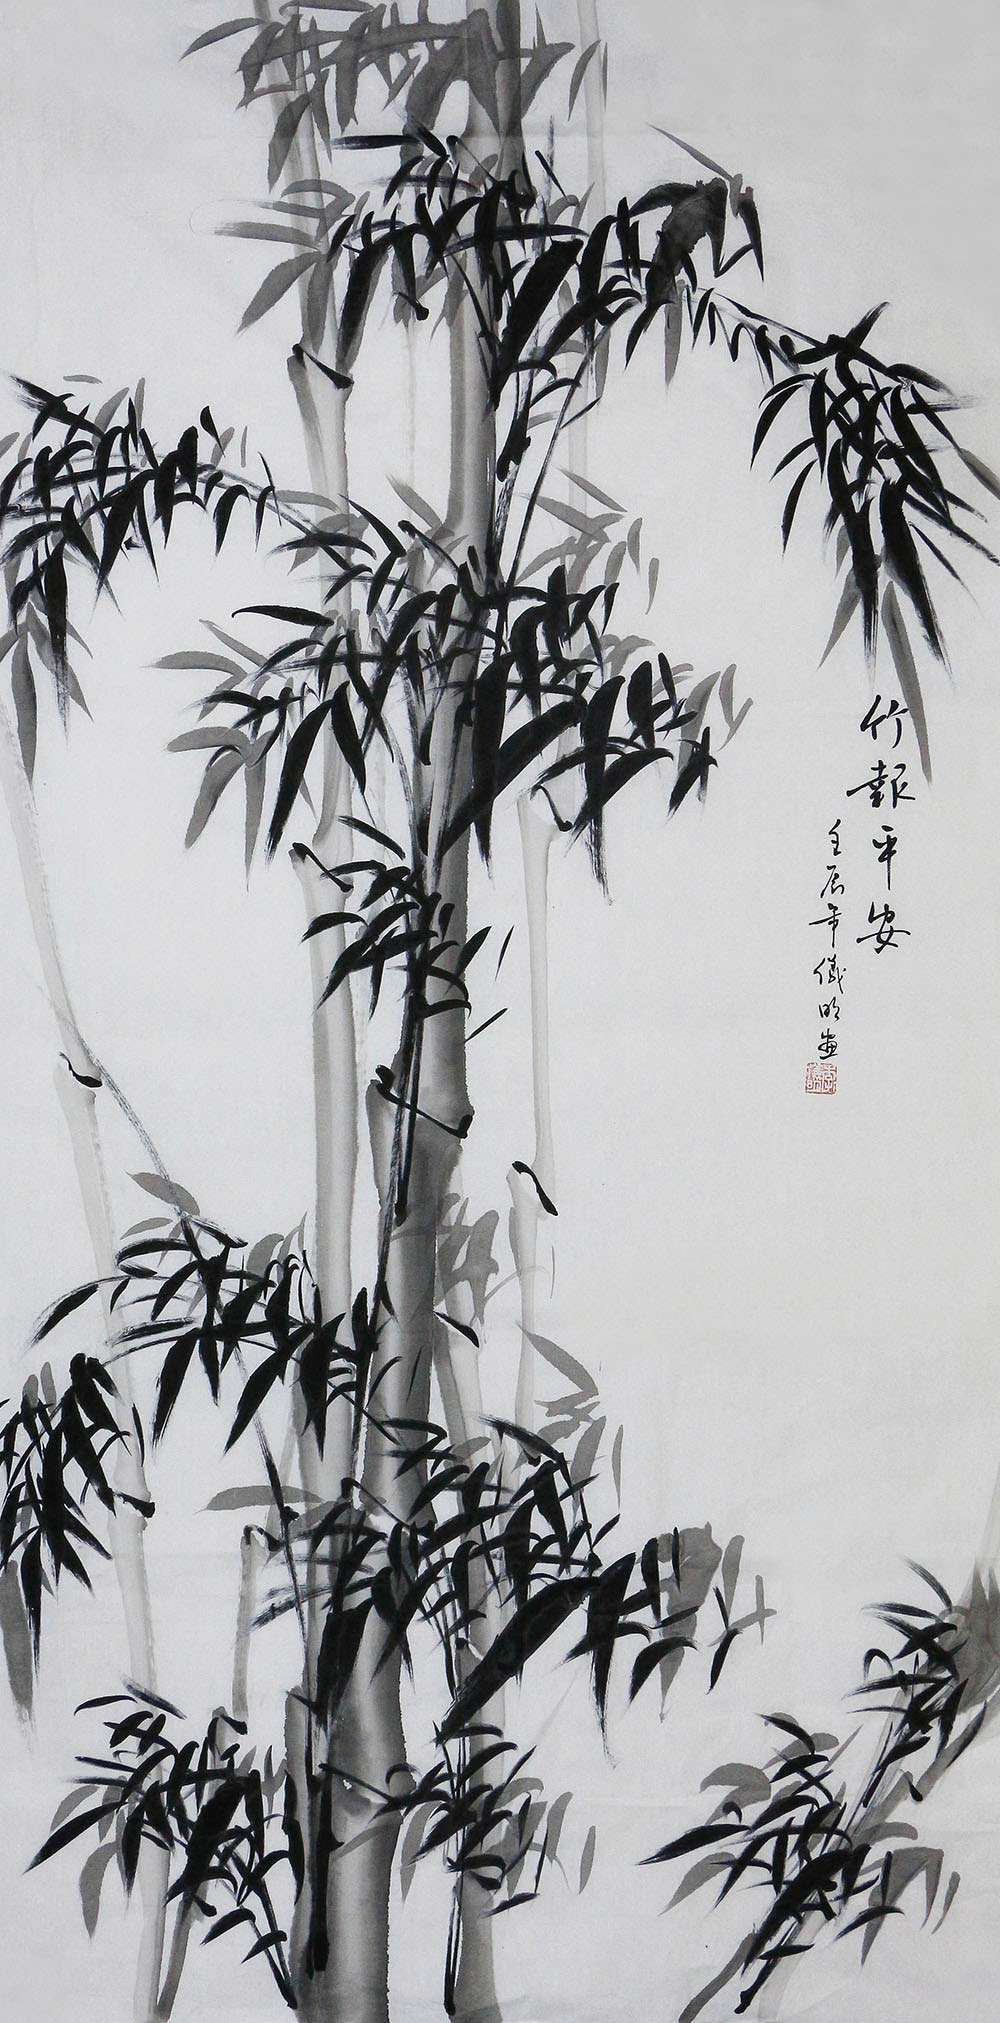 竹報平安
壬辰年儀明畫